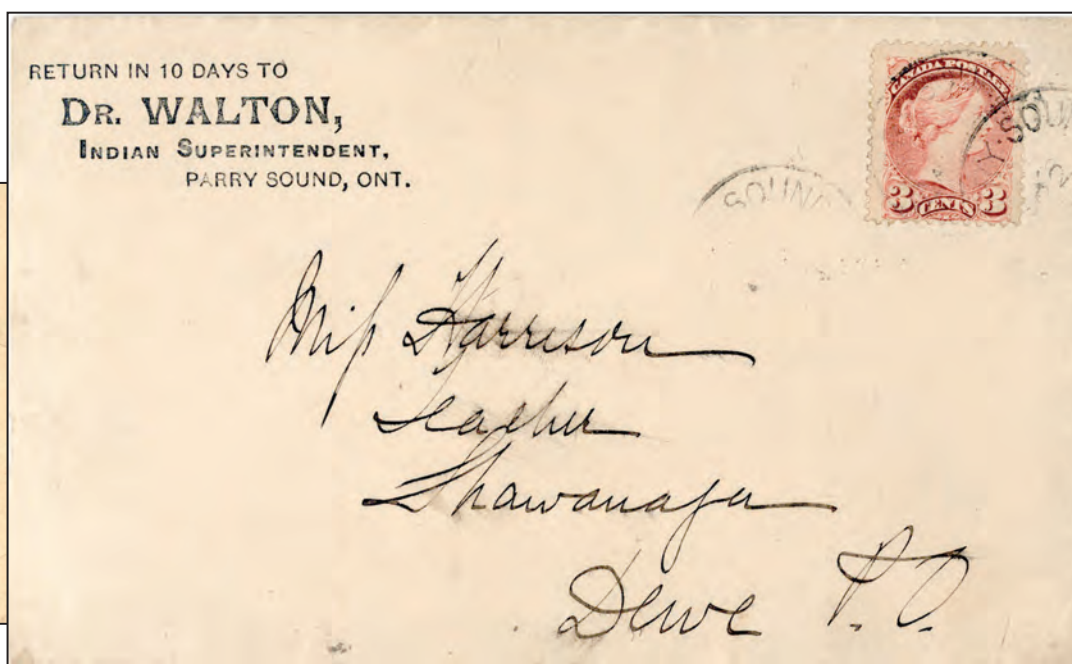 RETURN IN 10 DAYS TO
DR. WALTON,
INDIAN SUPERINTENDENT,
PARRY SOUND, ONT.
CANADA POSTAGE
3 CENTS 3
SOUND
Y. SOUN
Miss Harrison
Teacher
Shawanaga
Dewe P.O.